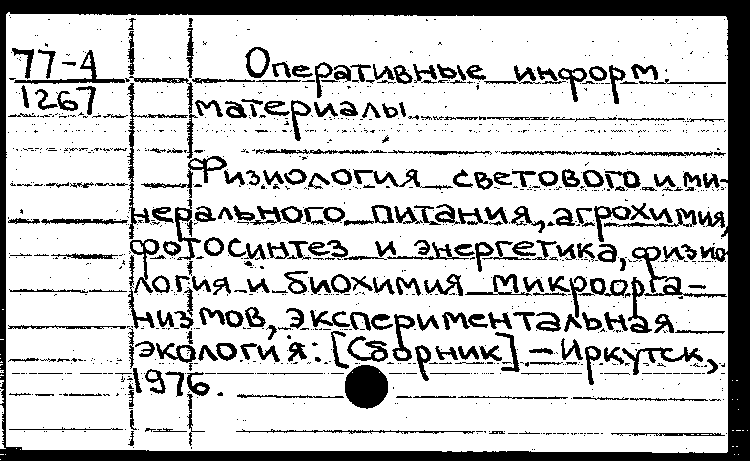 77-4 Оперативные информ.
1267 материалы
Физиология светового и ми-
нерального питания, агрохимия,
фотосинтез и энергетика, физио-
логия и биохимия микроорга-
низмов, экспериментальная
экология: [Сборник] - Иркутск,
1976.